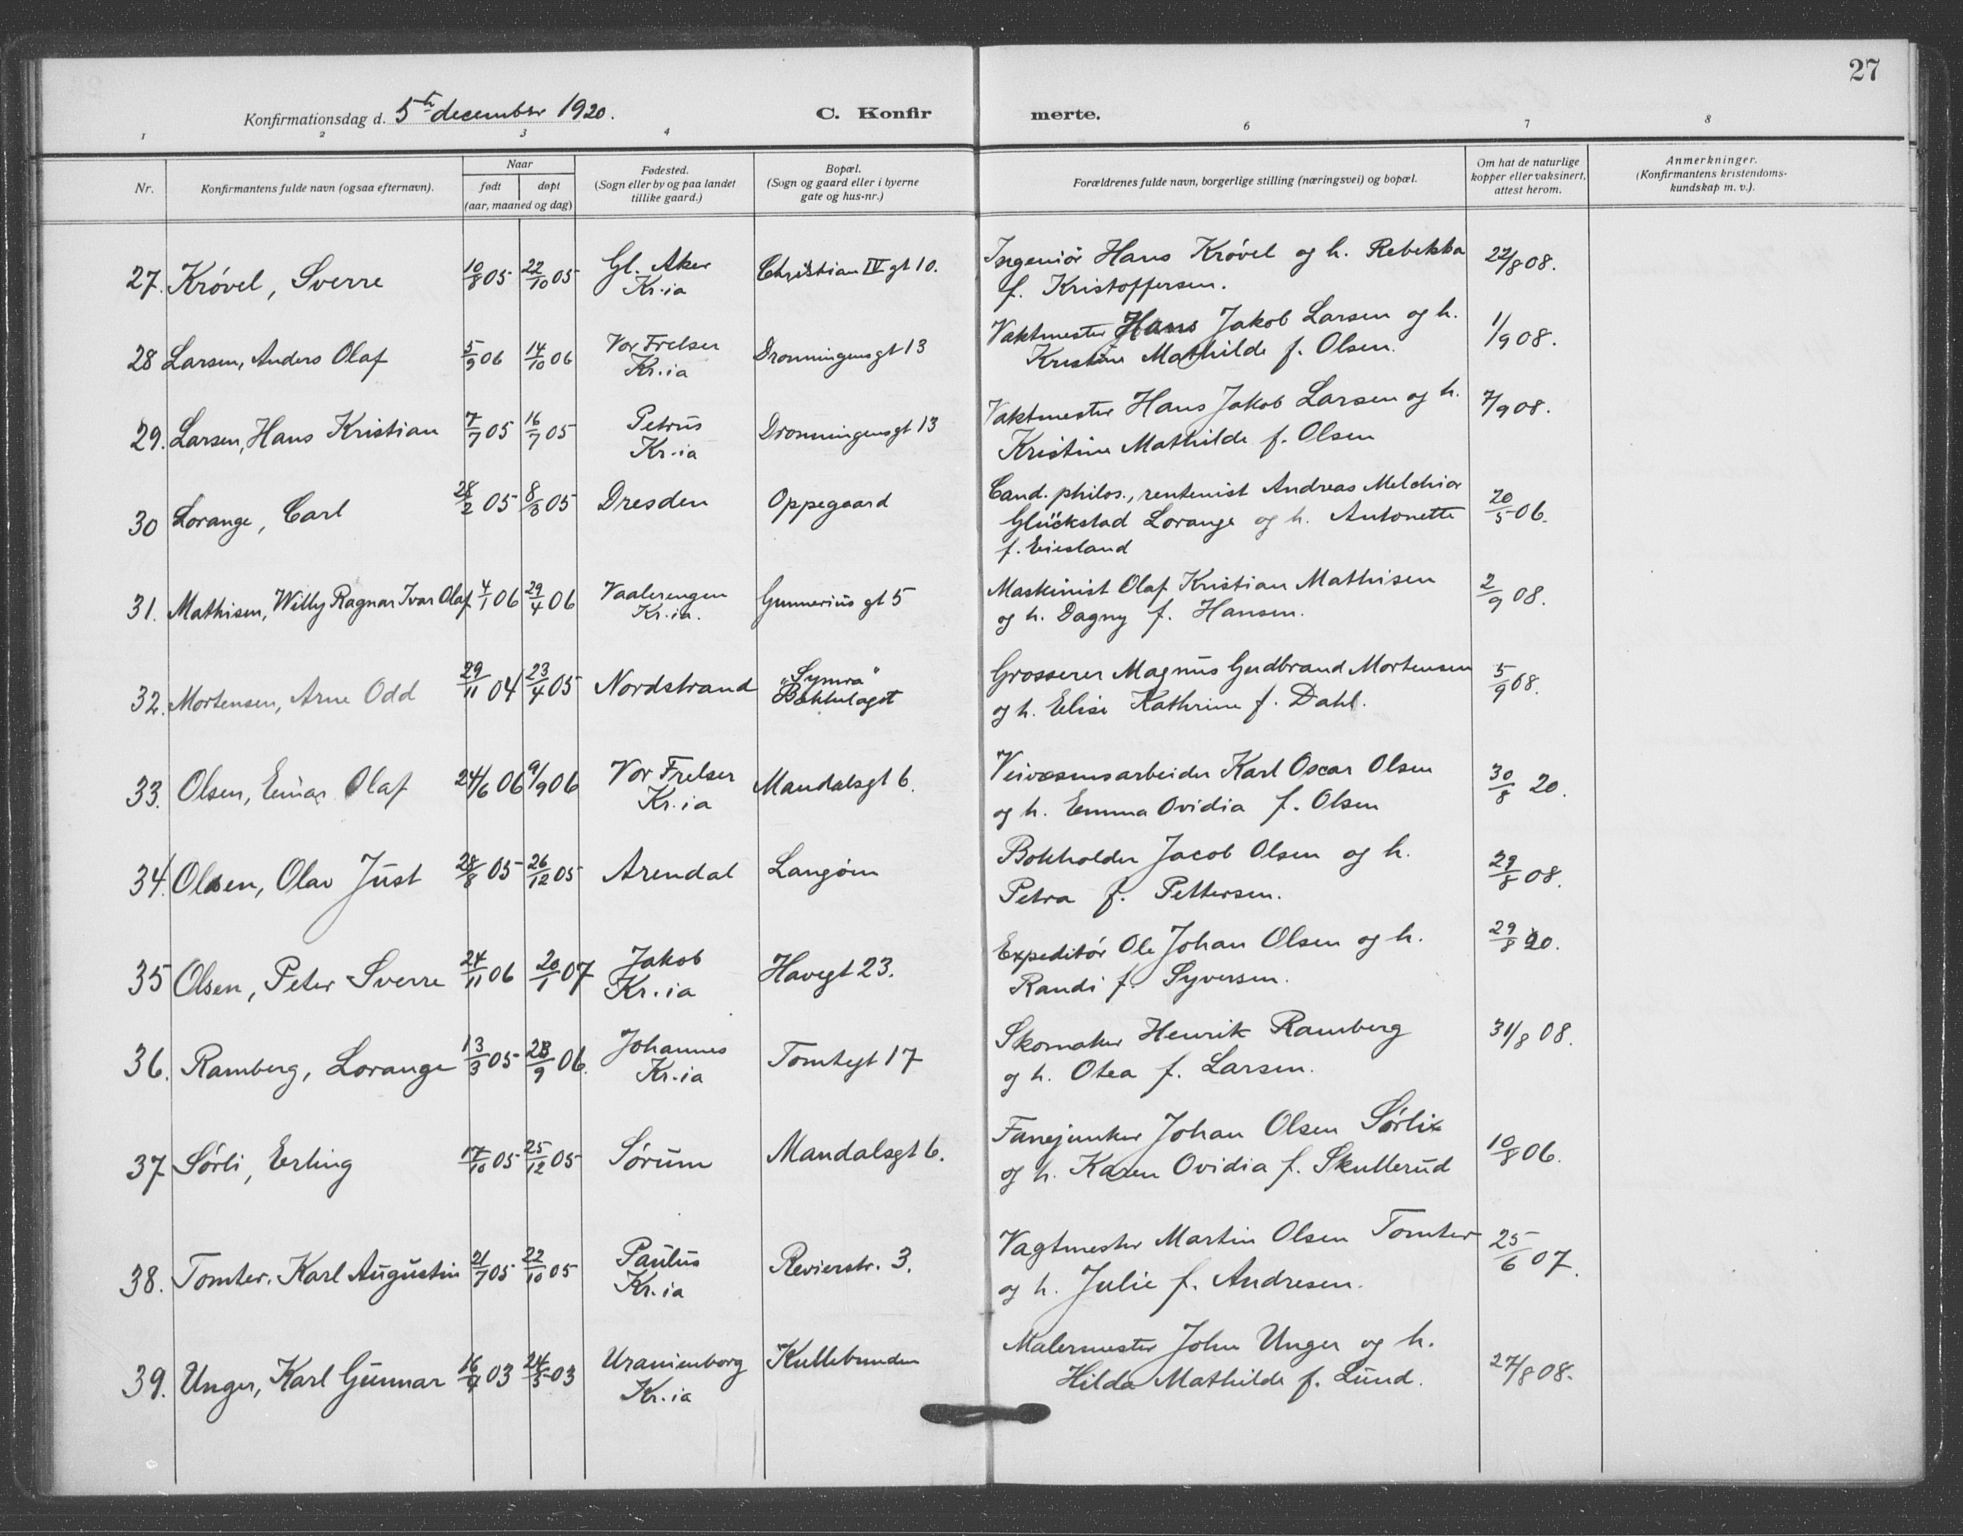 27
Konfirmationsdag d. 5th december 1920.
C. Konfirmerte.
1 2 3 4 6 7 8
Nr.
Konfirmantens fulde navn (ogsaa efternavn).
Naar
født døpt
(aar, maaned og dag)
Fødested.
(Sogn eller by og paa landet
tillike gaard.)
Bopæl.
(Sogn og gaard eller i byerne
gate og hus-nr.)
Forældrenes fulde navn, borgerlige stilling (næringsvei) og bopæl.
Om hat de naturlige
kopper eller vaksinert,
attest herom.
Anmerkninger.
(Konfirmantens kristendoms-
kundskap m. v.).
27. Króvel, Sverre 10/8 05 22/10 05 Gl. Aker Christian IV gt 10. Ingeniór Hans Króvel og h. Rebekka 27/8 08.
Kr.ia f. Kristoffersen.
28 Larsen, Anders Olaf 5/9 06 14/10 06 Vor Frelser Dronningensgt 13 Vaktmester Hans Jakob Larsen og h. 1/9 08.
Kr.ia Kristine Mathilde f. Olsen.
29. Larsen, Hans Kristian 7/7 05 16/7 05 Petrus Dronningensgt 13 Vaktmester Hans Jakob Larsen og h. 7/9 08.
Kr.ia Kristine Mathilde f. Olsen
30 Lorange, Carl 28/2 05 8/3 05 Dresden Oppegaard Cand. philos., rentenist Andreas Melchior 20/5 06.
Glückstad Lorange og h. Antonette
f. Eiesland
31. Mathisen, Willy Ragnar Ivar Olaf 4/1 06 29/4 06 Vaalerengen Gunnerius gt 5 Maskinist Olaf Kristian Mathisen 2/9 08.
Kr.ia. og h. Dagny f. Hansen.
32. Mortensen, Arne Odd 29/11 04 23/4 05 Nordstrand „Symra" Grosserer Magnus Gudbrand Mortensen 5/9 08.
Bekkelaget og h. Elise Kathrine f. Dahl.
33. Olsen, Einar Olaf 24/6 06 9/9 06 Vor Frelser Mandalsgt 6. Veivæsensarbeider Karl Oscar Olsen 30/8 20.
Kr.ia og h. Emma Ovidia f. Olsen
34. Olsen, Olav Just 28/8 05 26/12 05 Arendal Langóen Bokholder Jacob Olsen og h. 29/8 08.
Petra f. Pettersen.
35 Olsen, Peter Sverre 24/11 06 20/1 07 Jakob Havegt 23. Expeditór Ole Johan Olsen og h. 29/8 20.
Kr.ia Randi f. Syversen.
36. Ramberg, Lorange 13/3 05 23/9 06. Johannes Tomtegt 17 Skomaker Henrik Ramberg 31/8 08.
Kr.ia og h. Otea f. Larsen.
37 Sórli, Erling 17/10 05 25/12 05 Sórum Mandalsgt 6. Fanejunker Johan Olsen Sórli 10/8 06.
og h. Karen Ovidia f. Skullerud
38. Tomter, Karl Augustin 21/7 05 22/10 05 Paulus Revierstr. 3. Vagtmester Martin Olsen Tomter 25/6 07.
Kr.ia og h. Julie f. Andresen.
39. Unger, Karl Gunnar 16/4 03 24/5 03 Uranienborg Kullebunden Malermester John Unger og h. 27/8 08.
Kr.ia Hilda Mathilde f. Lund.